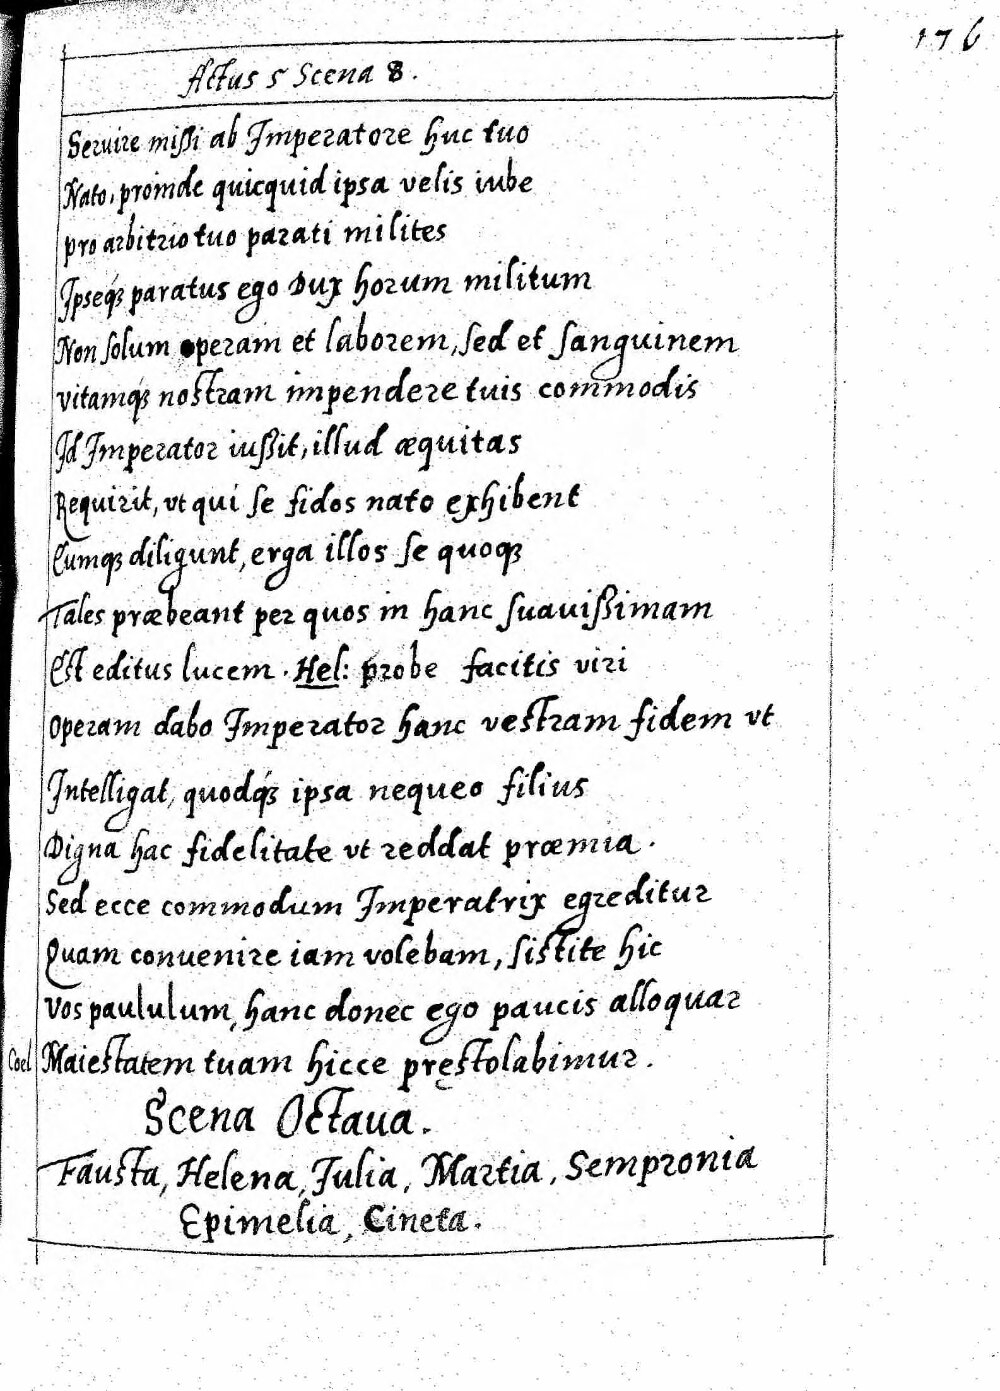 176
Actus 5 Scena 8.
Seruire missi ab Imperatore huc tuo
Nato, proinde quicquid ipsa velis iube
pro arbitrio tuo parati milites
Ipseq́ꝫ paratus ego Dux horum militum
Non solum operam et laborem, sed et sanguinem
vitamq́ꝫ nostram impendere tuis commodis
Id Imperator iussit, illud æquitas
Requirit, vt qui se fidos nato exhibent
Eumqꝫ diligunt, erga illos se quoqꝫ
Tales præbeant per quos in hanc suauissimam
Est editus lucem. Hel: probe facitis viri
Operam dabo Imperator hanc vestram fidem vt
Intelligat, quodq́ꝫ ipsa nequeo filius
Digna hac fidelitate vt reddat præmia.
Sed ecce commodum Imperatrix egreditur
Quam conuenire iam volebam, sistite hic
Vos paululum, hanc donec ego paucis alloquar
Coel Maiestatem tuam hicce pręstolabimur.
Scena Octaua.
Fausta, Helena, Julia, Martia, Sempronia
Epimelia, Cineta.